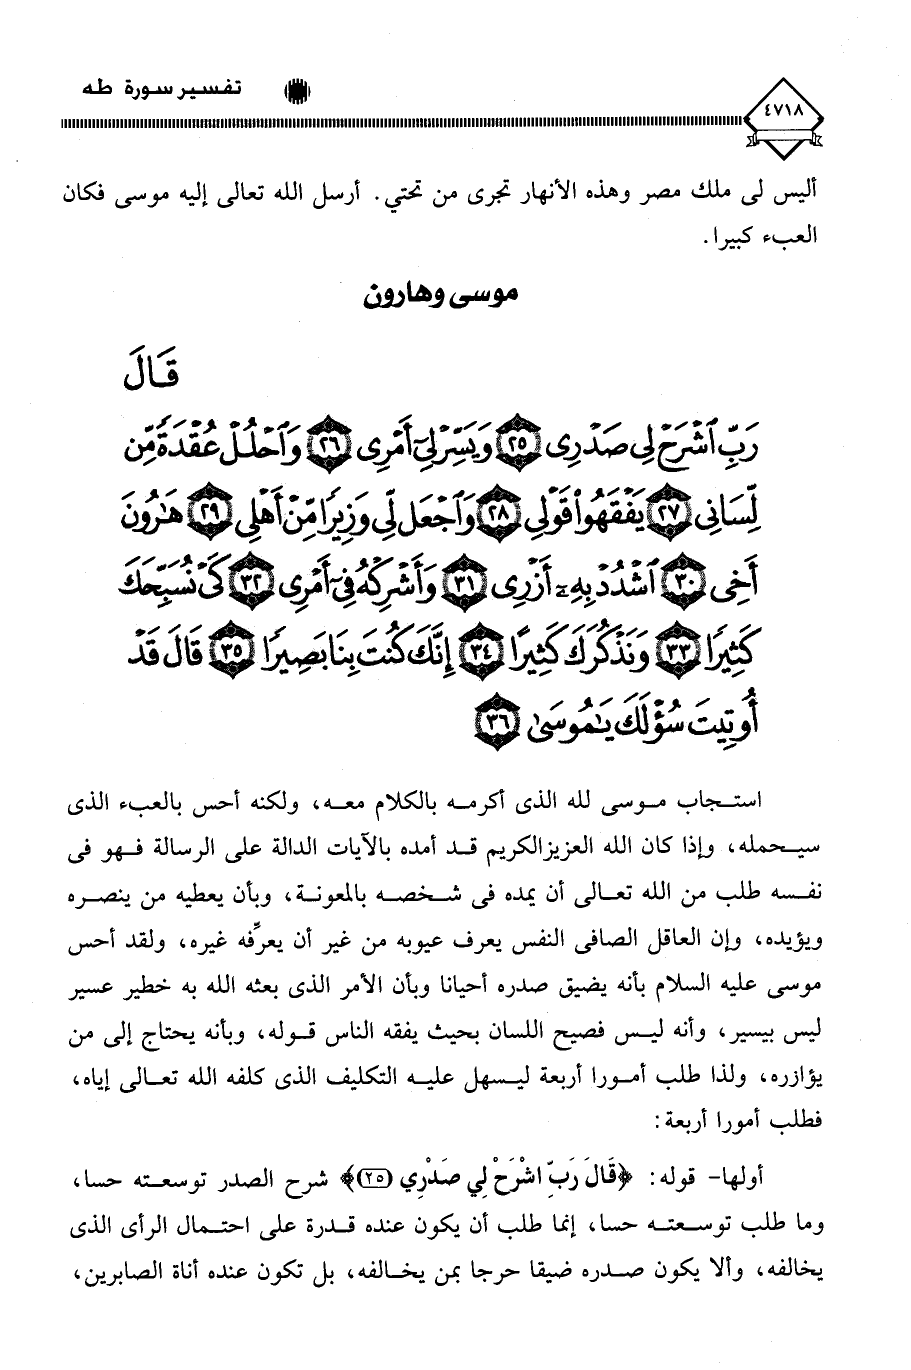 تفسير سورة طه
٤٧١٨
أليس لى ملك مصر وهذه الأنهار تجرى من تحتي. أرسل الله تعالى إليه موسى فكان
العبء كبيرا.
موسى وهارون
قَالَ
رَبِّ ٱشْرَحْ لِي صَدْرِي ٢٥ وَيَسِّرْ لِيٓ أَمْرِي ٢٦ وَٱحْلُلْ عُقْدَةً مِّن
لِّسَانِي ٢٧ يَفْقَهُوا۟ قَوْلِي ٢٨ وَٱجْعَل لِّي وَزِيرًا مِّنْ أَهْلِي ٢٩ هَٰرُونَ
أَخِي ٣٠ ٱشْدُدْ بِهِۦٓ أَزْرِي ٣١ وَأَشْرِكْهُ فِيٓ أَمْرِي ٣٢ كَيْ نُسَبِّحَكَ
كَثِيرًا ٣٣ وَنَذْكُرَكَ كَثِيرًا ٣٤ إِنَّكَ كُنتَ بِنَا بَصِيرًا ٣٥ قَالَ قَدْ
أُوتِيتَ سُؤْلَكَ يَٰمُوسَىٰ ٣٦
استجاب موسى لله الذى أكرمه بالكلام معه، ولكنه أحس بالعبء الذى
سيحمله، وإذا كان الله العزيز الكريم قد أمده بالآيات الدالة على الرسالة فهو فى
نفسه طلب من الله تعالى أن يمده فى شخصه بالمعونة، وبأن يعطيه من ينصره
ويؤيده، وإن العاقل الصافى النفس يعرف عيوبه من غير أن يعرِّفه غيره، ولقد أحس
موسى عليه السلام بأنه يضيق صدره أحيانا وبأن الأمر الذى بعثه الله به خطير عسير
ليس بيسير، وأنه ليس فصيح اللسان بحيث يفقه الناس قوله، وبأنه يحتاج إلى من
يؤازره، ولذا طلب أمورا أربعة ليسهل عليه التكليف الذى كلفه الله تعالى إياه،
فطلب أمورا أربعة:
أولها- قوله: ﴿قَالَ رَبِّ اشْرَحْ لِي صَدْرِي (٢٥)﴾ شرح الصدر توسعته حسا،
وما طلب توسعته حسا، إنما طلب أن يكون عنده قدرة على احتمال الرأى الذى
يخالفه، وألا يكون صدره ضيقا حرجا بمن يخالفه، بل تكون عنده أناة الصابرين،